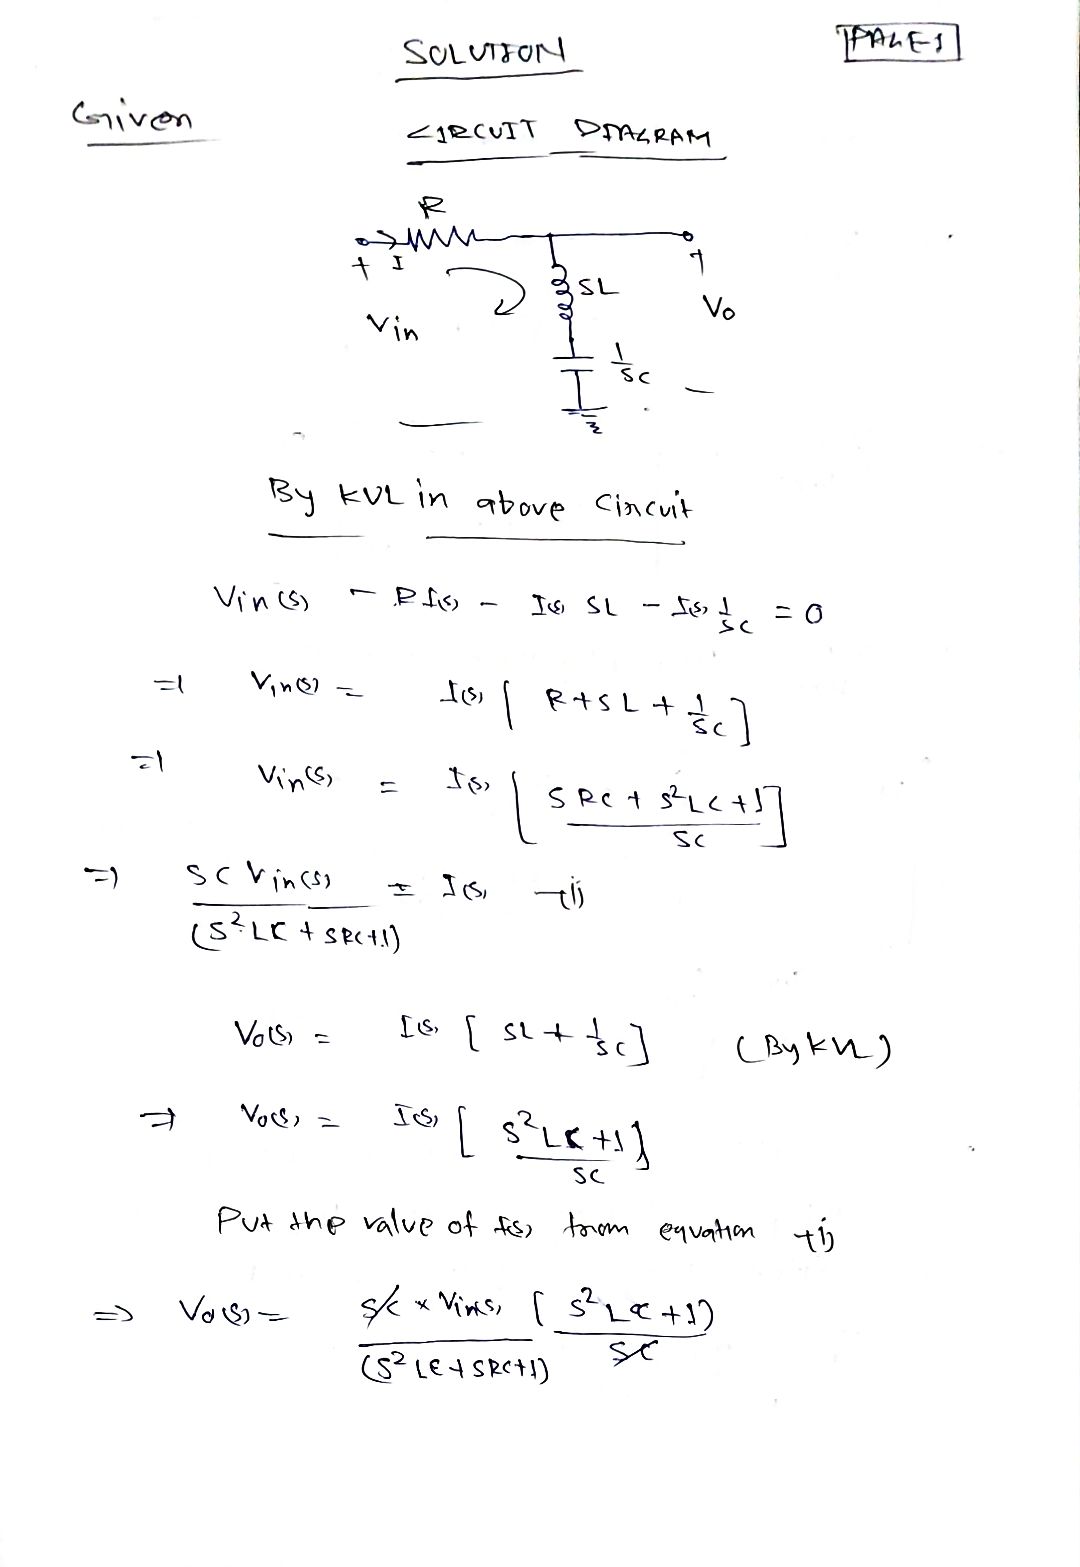 SOLUTION
PAGE 1
Given
CIRCUIT DIAGRAM
R
+ I
SL
+
Vin
Vo
1/SC
-
By KVL in above Circuit
Vin(s) - R I(s) - I(s) SL - I(s) 1/SC = 0
=> Vin(s) = I(s) [ R + SL + 1/SC ]
=> Vin(s) = I(s) [ (SRC + S²LC + 1)/SC ]
=> SC Vin(s)/(S²LC + SRC+1) = I(s) -(i)
Vo(s) = I(s) [ SL + 1/SC ] (By KVL)
=> Vo(s) = I(s) [ (S²LC + 1)/SC ]
Put the value of I(s) from equation -(i)
=> Vo(s) = SC x Vin(s)/(S²LC + SRC+1) [ (S²LC + 1)/SC